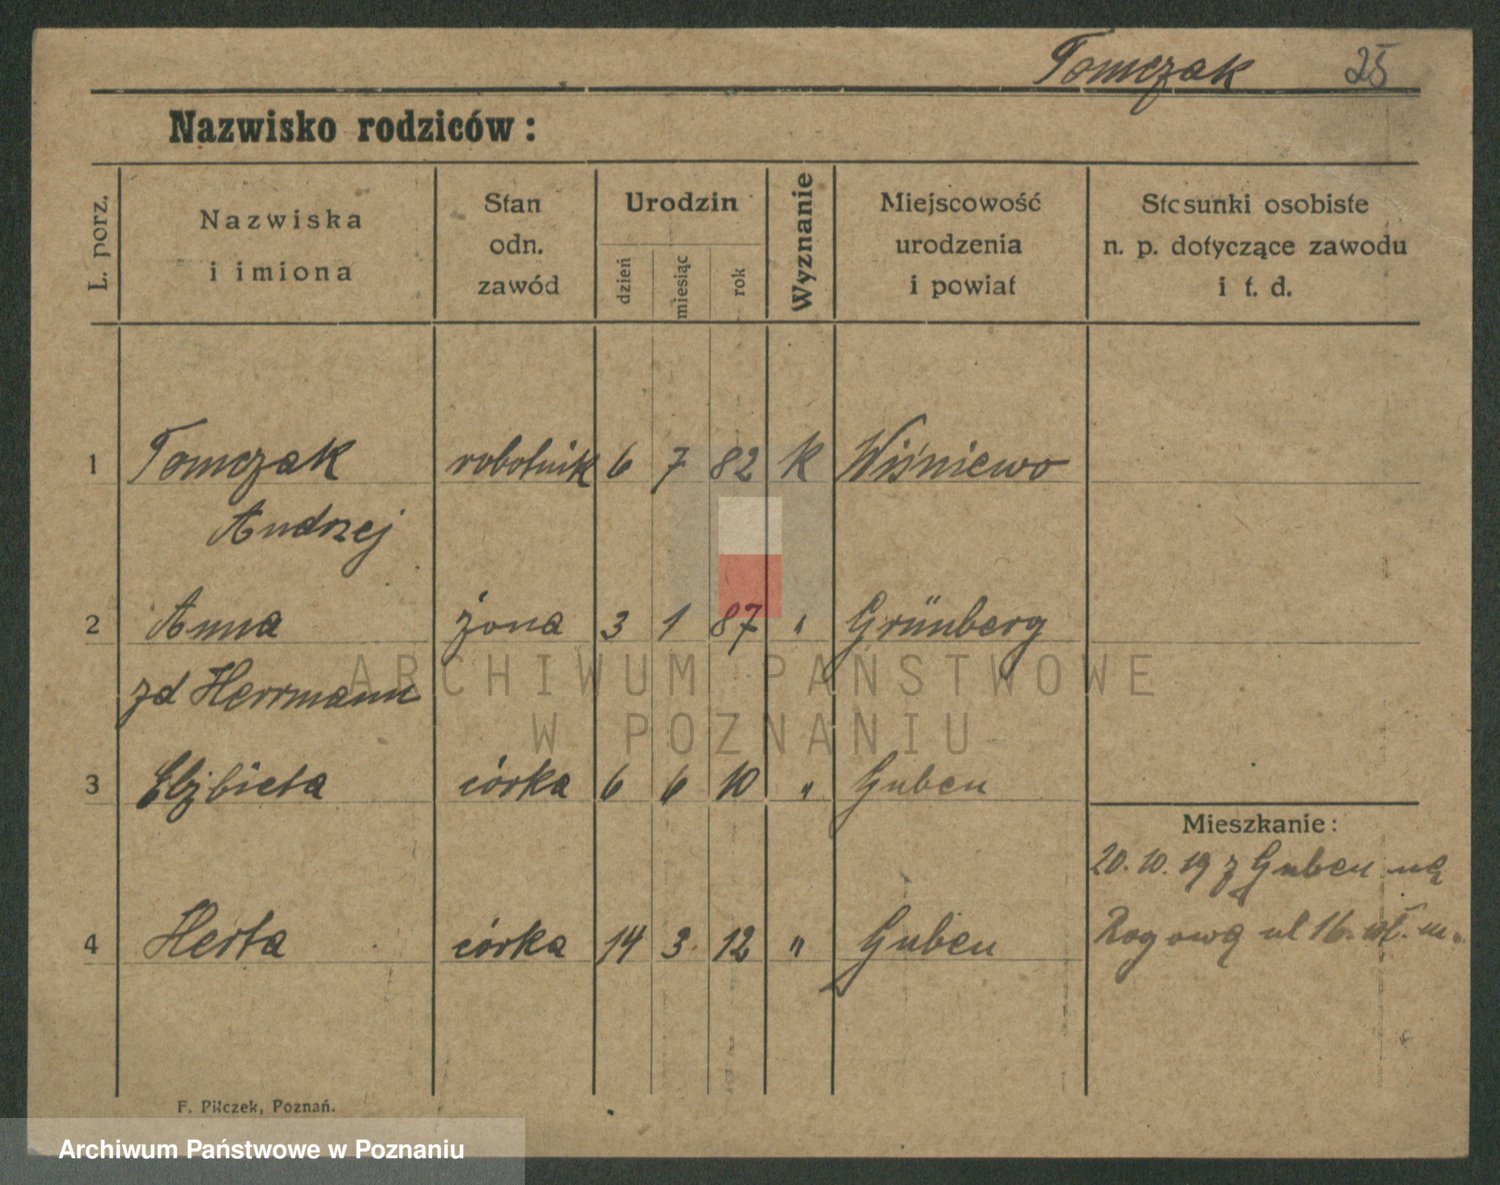 Tomczak 25
Nazwisko rodziców:
L. porz.
Nazwiska
i imiona
Stan
odn.
zawód
Urodzin
dzień
miesiąc
rok
Wyznanie
Miejscowość
urodzenia
i powiat
Stosunki osobiste
n. p. dotyczące zawodu
i t. d.
1 Tomczak robotnik 6 7 82 k Wiśniewo
Andrzej
2 Anna żona 3 1 87 " Grünberg
zd Herrmann
ARCHIWUM PAŃSTWOWE
W POZNANIU
3 Elżbieta córka 6 6 10 " Guben
Mieszkanie:
20.10.19 z Guben na
4 Herta córka 14 3 12 " Guben
Rogową ul 16. wł. m.
F. Pilczek, Poznań.
Archiwum Państwowe w Poznaniu